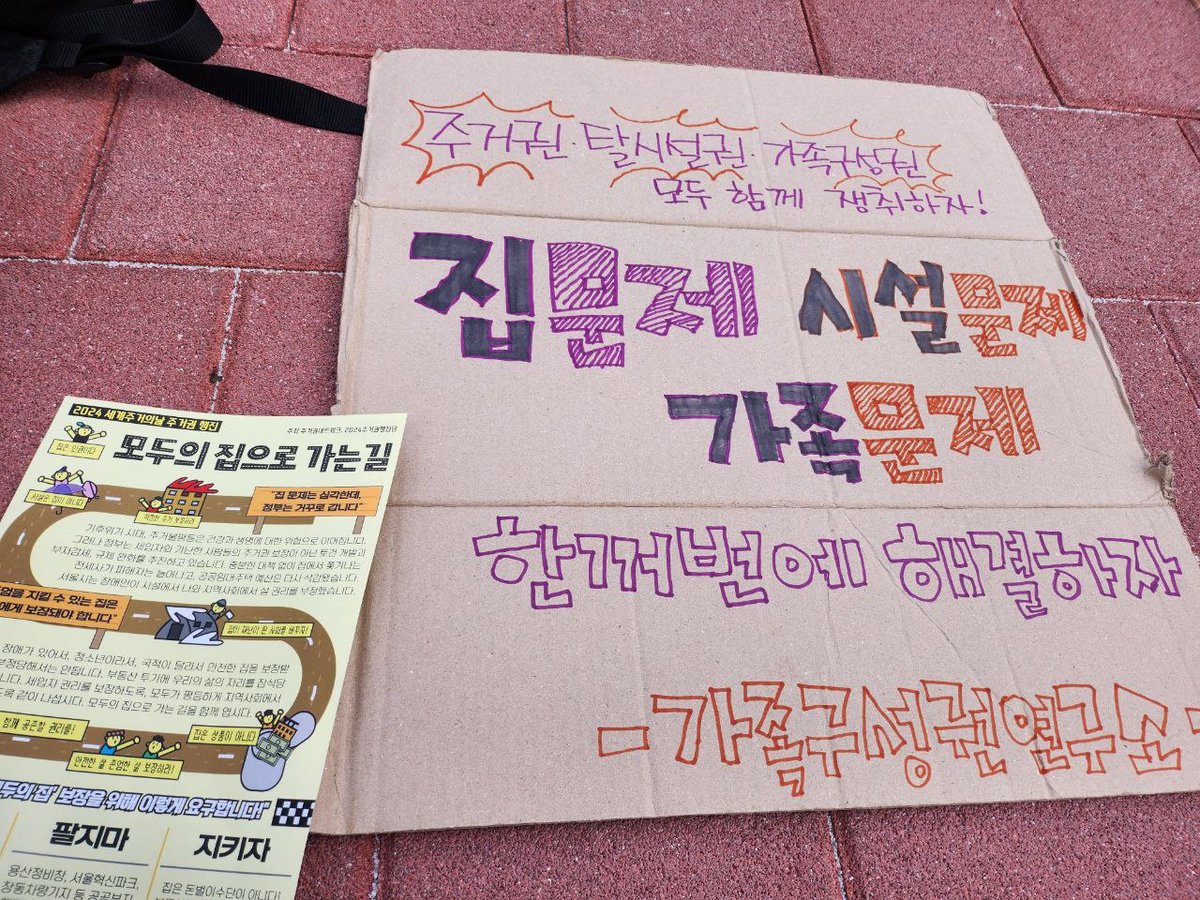 주거권·탈시설권·가족구성권
모두 함께 쟁취하자!
집문제 시설문제
가족문제
한꺼번에 해결하자
-가족구성권연구소-
2024 세계주거의날 주거권 행진
주최 주거권네트워크, 2024주거권행진단
모두의 집으로 가는 길
집은 인권이다
시설은 집이 아니다
적정한 주거 보장하라
"집 문제는 심각한데,
정부는 거꾸로 갑니다"
기후위기 시대, 주거불평등은 건강과 생명에 대한 위협으로 이어집니다.
그러나 정부는 세입자와 가난한 사람들의 주거권 보장이 아닌 토건 개발과
부자감세, 규제 완화를 추진하고 있습니다. 충분한 대책 없이 집에서 쫓겨나는
전세사기 피해자는 늘어나고, 공공임대주택 예산은 다시 삭감됐습니다.
서울시는 장애인이 시설에서 나와 지역사회에서 살 권리를 부정했습니다.
지킬 수 있는 집은
에게 보장돼야 합니다"
집이 재난이 된 사회를 바꾸자!
장애가 있어서, 청소년이라서, 국적이 달라서 안전한 집을 보장받
부정당해서는 안됩니다. 부동산 투기에 우리의 삶의 자리를 잠식당
니다. 세입자 권리를 보장하도록, 모두가 평등하게 지역사회에서
도록 같이 나섭시다. 모두의 집으로 가는 길을 함께 엽시다.
함께 공존할 권리를!
집은 상품이 아니다
안전한 삶 존엄한 삶 보장하라!
모두의 집' 보장을 위해 이렇게 요구합니다!"
팔지마
지키자
용산정비창, 서울혁신파크,
창동차량기지 등 공공부지
집은 돈벌이수단이 아니다!